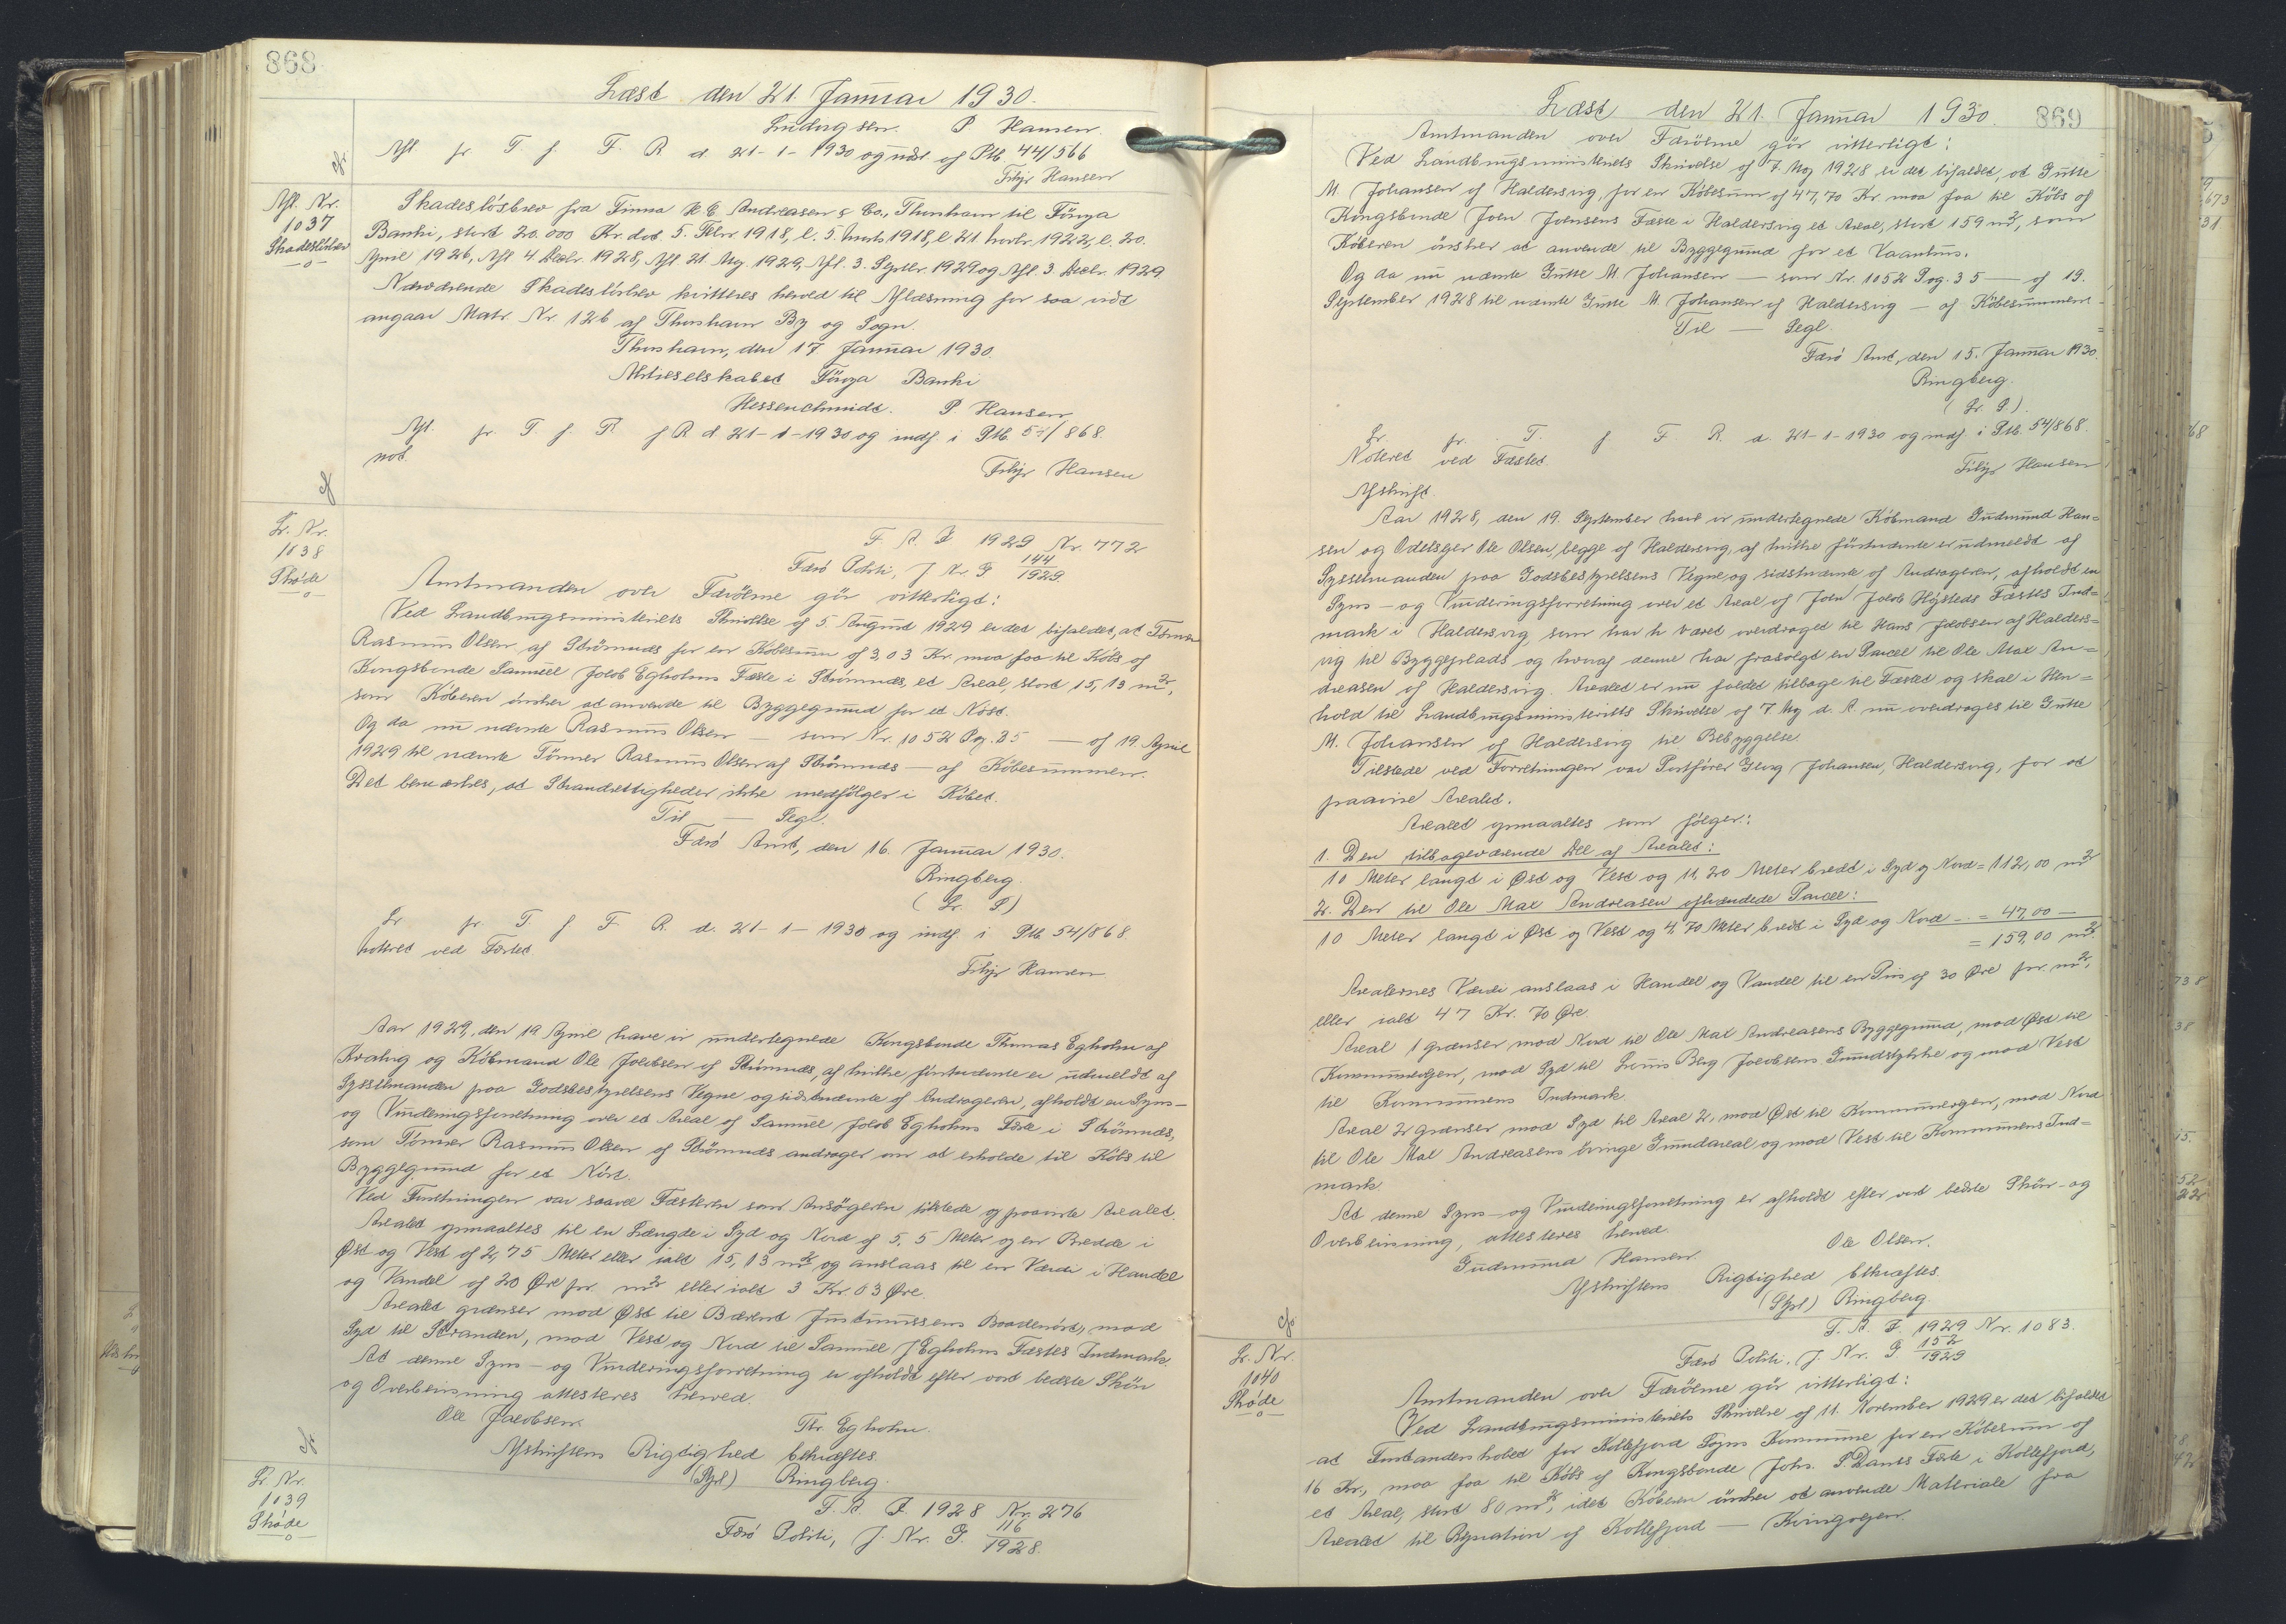 868
Læst den 21. Januar 1930.
Ludvigsen. P Hansen.
Afl fr. T. f. F. R d. 21-1-1930 og udsl. af Ptb. 44/566
Filip Hansen
Afl. Nr.
1037
Skadesløsbrev
Skadesløsbrev fra Firma H. C. Andreasen & Co., Thorshavn til Föroya
Banki, stort 20.000 Kr. dat. 5. Febr 1918, l. 5. Marts 1918, l. 21 Novbr. 1922, l. 20.
April 1926, Afl 4 Decbr. 1928, Afl. 21 Maj. 1929, Afl. 3. Septbr. 1929 og Afl. 3. Decbr. 1929
Nærværende Skadesløsbrev kvitteres herved til Aflæsning for saa vidt
angaar Matr. Nr. 126 af Thorshavn By og Sogn.
Thorshavn, den 17 Januar 1930.
Aktieselskabet Föroya Banki
Hessenschmidt. P. Hansen
Afl. fr. T. f. F. R d. 21-1-1930 og indf. i Ptb. 54/868.
not.
Filip Hansen
Lr. Nr.
1038
Skøde
F. A. J 1929 Nr. 772
Færö Politi, J. Nr. G 144/1929
Amtmanden over Færöerne gör vitterligt:
Ved Landbrugsministeriets Skrivelse af 5. August 1929 er det bifaldet, at Tömrer
Rasmus Olsen af Strömnæs for en Köbesum af 3,03 Kr. maa faa til Köbs af
Kongsbonde Samuel Jakob Egholms Fæste i Strömnæs, et Areal, stort 15,13 m²,
som Köberen önsker at anvende til Byggegrund for et Nöst.
Og da nu nævnte Rasmus Olsen — som Nr. 1052 Pag. 35 — af 19. April
1929 til nævnte Tömrer Rasmus Olsen af Strömnæs — af Köbesummen.
Det bemærkes, at Strandrettigheder ikke medfölger i Köbet.
Til — Segl.
Færö Amt, den 16. Januar 1930.
Ringberg.
(L. S.)
Lr fr. T. f F. R. d. 21-1-1930 og indf. i Ptb. 54/868.
Noteret ved Fæstet
Filip Hansen
Aar 1929, den 19 April have vi undertegnede Kongsbonde Thomas Egholm af
Kvalvig og Köbmand Ole Jacobsen af Strömnæs, af hvilke förstnævnte er udmeldt af
Sysselmanden paa Godsbestyrelsens Vegne og sidstnævnte af Andrageren, afholdt en Syns-
og Vurderingsforretning over et Areal af Samuel Jakob Egholms Fæste i Strömnæs,
som Tömrer Rasmus Olsen af Strömnæs andrager om at erholde til Köbs til
Byggegrund for et Nöst.
Ved Forretningen var saavel Fæsteren som Ansögeren tilstede og paaviste Arealet.
Arealet opmaaltes til en Længde i Syd og Nord af 5,5 Meter og en Bredde i
Øst og Vest af 2,75 Meter eller ialt 15,13 m² og anslaas til en Værdi i Handel
og Vandel af 20 Øre pr. m² eller ialt 3 Kr. 03 Øre.
Arealet grænser mod Øst til Bærent Justinussens Baadenöst, mod
Syd til Stranden, mod Vest og Nord til Samuel J Egholms Fæstes Indmark.
At denne Syns- og Vurderingsforretning er afholdt efter vort bedste Skön
og Overbevisning attesteres herved.
Ole Jacobsen. Thr. Egholm.
Afskriftens Rigtighed bekræftes.
(Sgd.) Ringberg.
Lr Nr.
1039
Skøde
F. A. J. 1928 Nr. 276
Færö Politi, J. Nr. G. 116/1928.
Læst den 21. Januar 1930.
869
Amtmanden over Færöerne gör vitterligt:
Ved Landbrugsministeriets Skrivelse af 7. Maj 1928 er det bifaldet, at Gutte
M. Johansen af Haldersvig for en Köbesum af 47,70 Kr. maa faa til Köbs af
Kongsbonde Joen Joensens Fæste i Haldersvig et Areal, stort 159 m², som
Köberen önsker at anvende til Byggegrund for et Vaanhus.
Og da nu nævnte Gutte M. Johansen — som Nr. 1052 Pag. 35 — af 19.
September 1928 til nævnte Gutte M. Johansen af Haldersvig — af Köbesummen
Til — Segl.
Færö Amt, den 15. Januar 1930.
Ringberg.
(L. S.).
Lr. fr. T. f F R. d. 21-1-1930 og indf i Ptb. 54/868.
Noteret ved Fæstet.
Filip Hansen
Afskrift.
Aar 1928, den 19. September have vi undertegnede Köbmand Gudmund Han=
sen og Odelsejer Ole Olsen, begge af Haldersvig, af hvilke förstnævnte er udmeldt af
Sysselmanden paa Godsbestyrelsens Vegne, og sidstnævnte af Andrageren, afholdt en
Syns- og Vurderingsforretning over et Areal af Joen Jakob Höjsteds Fæstes Ind=
mark i Haldersvig, som har h været overdraget til Hans Jacobsen af Halders=
vig til Byggeplads og hvoraf denne har frasolgt en Parcel til Ole Max An=
dreasen af Haldersvig. Arealet er nu faldet tilbage til Fæstet og skal i Hen=
hold til Landbrugsministeriets Skrivelse af 7 Maj d. A. nu overdrages til Gutte
M. Johansen af Haldersvig til Bebyggelse.
Tilstede ved Forretningen var Postförer Georg Johansen, Haldersvig, for at
paavise Arealet.
Arealet opmaaltes som fölger:
1. Den tilbageværende Del af Arealet:
10 Meter langt i Øst og Vest og 11,20 Meter bredt i Syd og Nord = 112,00 m²
2. Den til Ole Max Andreasen afhændede Parcel:
10 Meter langt i Øst og Vest og 4,70 Meter bredt i Syd og Nord - = 47,00 —
= 159,00 m².
Arealernes Værdi anslaas i Handel og Vandel til en Pris af 30 Øre pr. m²,
eller ialt 47 Kr. 70 Øre.
Areal 1 grænser mod Nord til Ole Max Andreasens Byggegrund, mod Øst til
Kommunevejen, mod Syd til Louis Berg Jacobsens Grundstykke og mod Vest
til Kommunens Indmark.
Areal 2 grænser mod Syd til Areal 2, mod Øst til Kommunevejen, mod Nord
til Ole Max Andreasens övrige Grundareal og mod Vest til Kommunens Ind=
mark
At denne Syns- og Vurderingsforretning er afholdt efter vort bedste Skön- og
Overbevisning, attesteres herved.
Gudmund Hansen. Ole Olsen.
Afskriftens Rigtighed bekræftes.
(Sgd) Ringberg
Lr. Nr.
1040
Skøde
F. A. J. 1929 Nr. 1083.
Færö Politi, J. Nr. G 152/1929
Amtmanden over Færöerne gör vitterligt:
Ved Landbrugsministeriets Skrivelse af 11. November 1929 er det bifaldet
at Forstanderskabet for Kollefjord Sogns Kommune for en Köbesum af
16 Kr., maa faa til Köbs af Kongsbonde Johs. P. Dams Fæste i Kollefjord,
et Areal, stort 80 m², idet Köberen önsker at anvende Materiale fra
Arealet til Reparation af Kollefjord — Kvingogen.